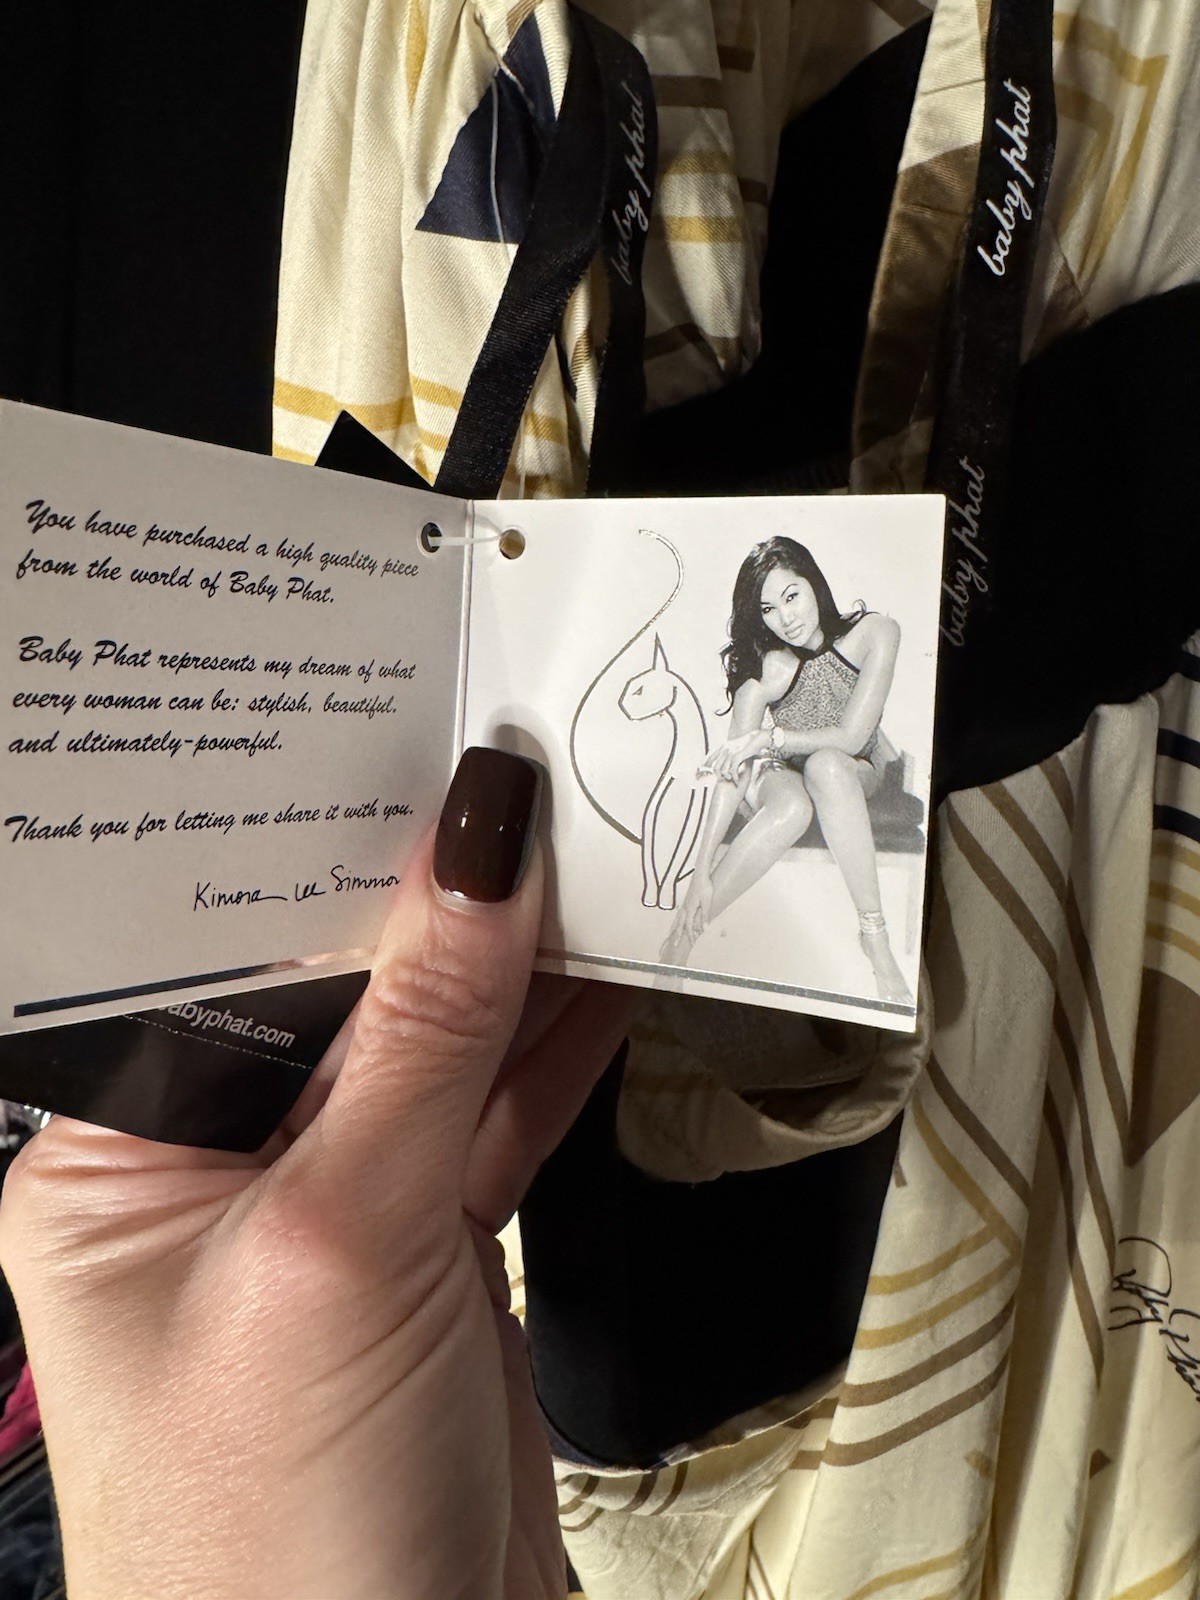 baby phat
baby phat
baby phat
You have purchased a high quality piece
from the world of Baby Phat.
Baby Phat represents my dream of what
every woman can be: stylish, beautiful,
and ultimately-powerful.
Thank you for letting me share it with you.
Kimora Lee Simmo
babyphat.com